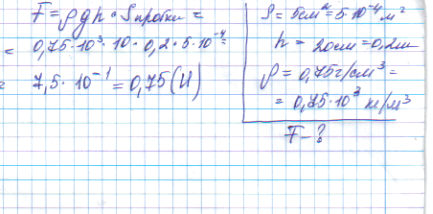 F = ρgh · Sпробки =
= 0,75·10³·10·0,2·5·10⁻⁴=
= 7,5·10⁻¹ = 0,75 (Н)
S = 5см² = 5·10⁻⁴ м²
h = 20см = 0,2м
ρ = 0,75г/см³ =
= 0,75·10³ кг/м³
F - ?